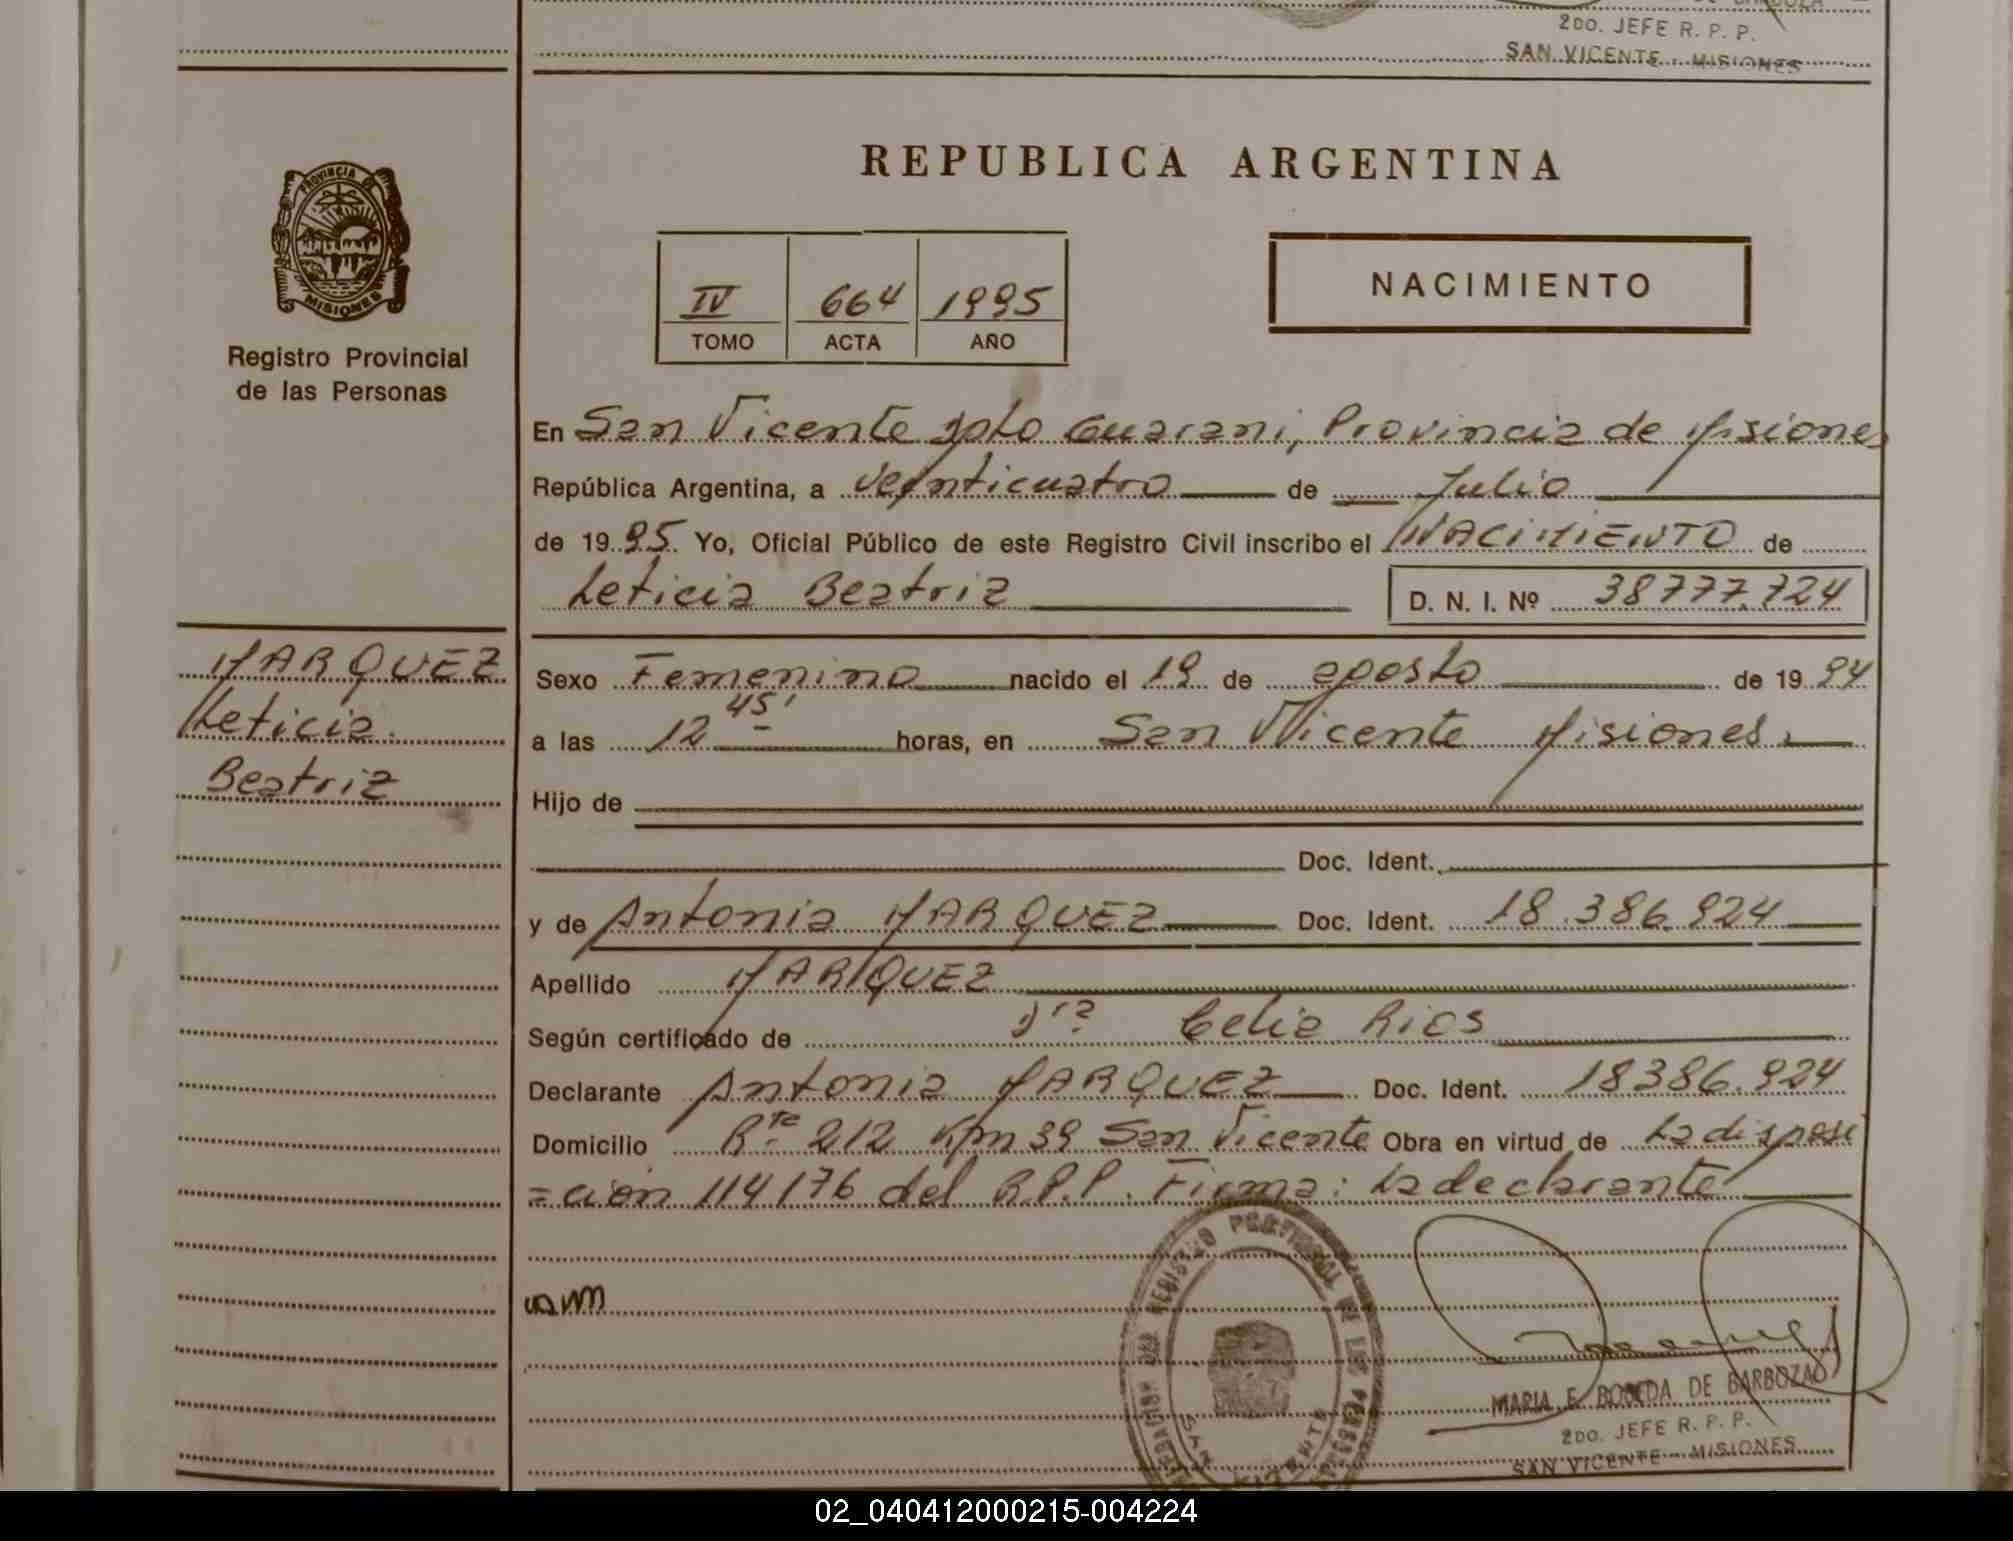 2DO. JEFE R. P. P.
SAN VICENTE - MISIONES
PROVINCIA DE
MISIONES
Registro Provincial
de las Personas
REPUBLICA ARGENTINA
IV 664 1995
TOMO ACTA AÑO
NACIMIENTO
En San Vicente Dpto Guarani, Provincia de Misiones
República Argentina, a veinticuatro de Julio
de 1995 Yo, Oficial Público de este Registro Civil inscribo el NACIMIENTO de
Leticia Beatriz D. N. I. Nº 38777.724
MARQUEZ
Leticia
Beatriz
Sexo Femenino nacido el 19 de agosto de 1994
a las 12 45' horas, en San Vicente Misiones.
Hijo de
Doc. Ident.
y de Antonia MARQUEZ Doc. Ident. 18.386.924
Apellido MARQUEZ
Según certificado de Dra Celia Rios
Declarante Antonia MARQUEZ Doc. Ident. 18386.924
Domicilio Rta 212 Km 39 San Vicente Obra en virtud de La disposi
=cion 114/76 del R.P.P. Firma: La declarante
REGISTRO PROVINCIAL DE LAS PERSONAS
SAN VICENTE
MARIA E. BOBEDA DE BARBOZA
2DO. JEFE R. P. P.
SAN VICENTE - MISIONES
02_040412000215-004224